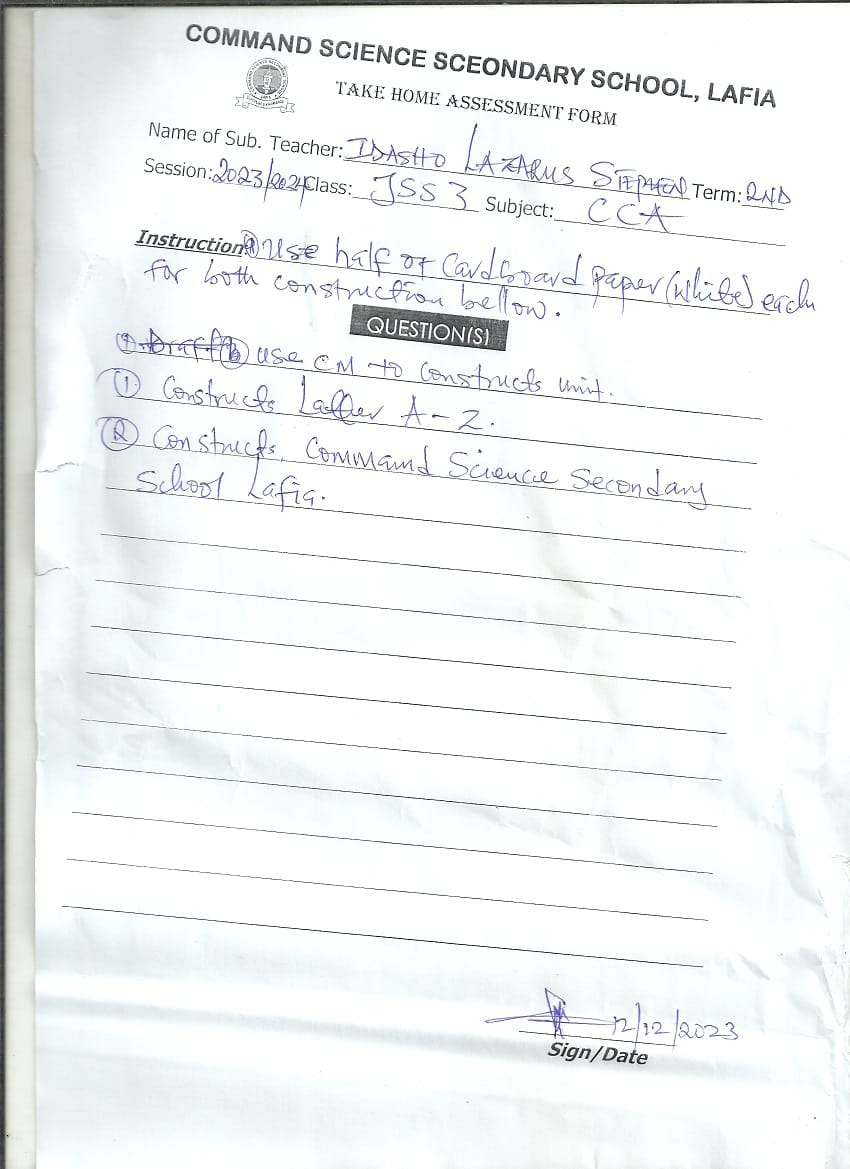 COMMAND SCIENCE SCEONDARY SCHOOL, LAFIA
TAKE HOME ASSESSMENT FORM
Name of Sub. Teacher: IDASHO LAZARUS STEPHEN Term: 2ND
Session: 2023/2024 Class: JSS 3 Subject: CCA
Instruction: (a) Use half of Cardboard Paper (white) each
for both construction bellow.
QUESTION(S)
(b) use CM to constructs unit.
(1) Constructs Latter A-Z.
(2) Constructs. Command Science Secondary
School Lafia.
12/12/2023
Sign/Date